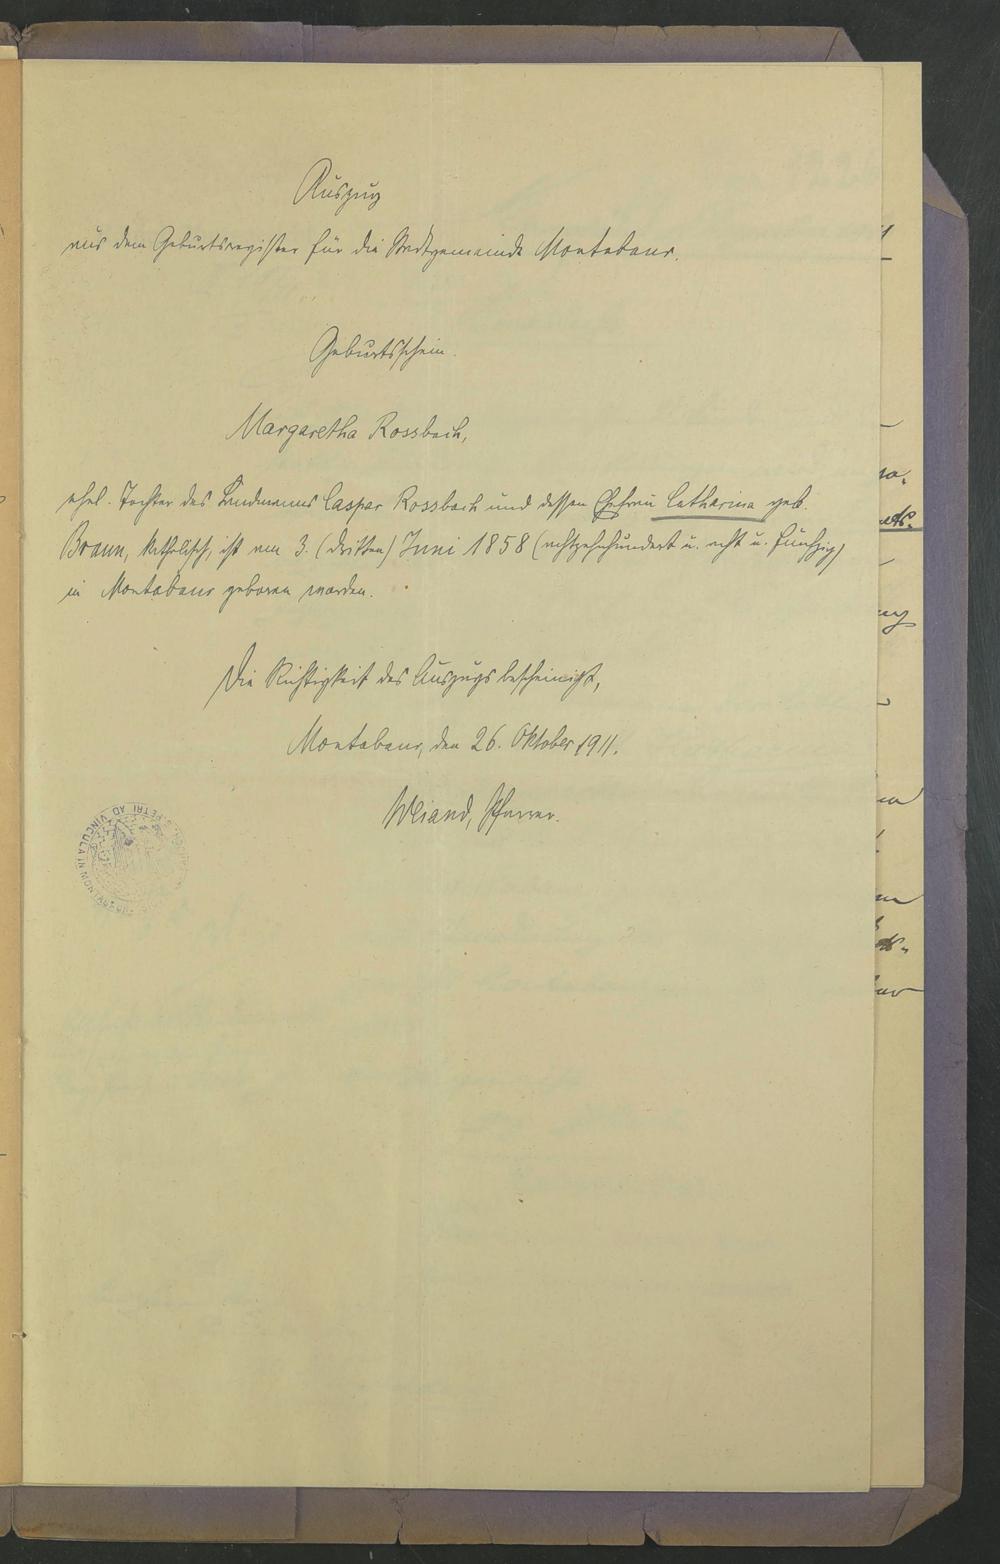 Auszug
aus dem Geburtsregister für die Stadtgemeinde Montabaur.
Geburtsschein.
Margaretha Rossbach,
ehel. Tochter des Landmanns Caspar Rossbach und dessen Ehefrau Catharina geb.
Braun, katholisch, ist am 3. (dritten) Juni 1858 (achtzehnhundert u. acht u. fünfzig)
in Montabaur geboren worden.
Die Richtigkeit des Auszugs bescheinigt,
Montabaur, den 26. Oktober 1911.
Weiand, Pfarrer.
S. PETRI AD VINCULA IN MONTABAUR